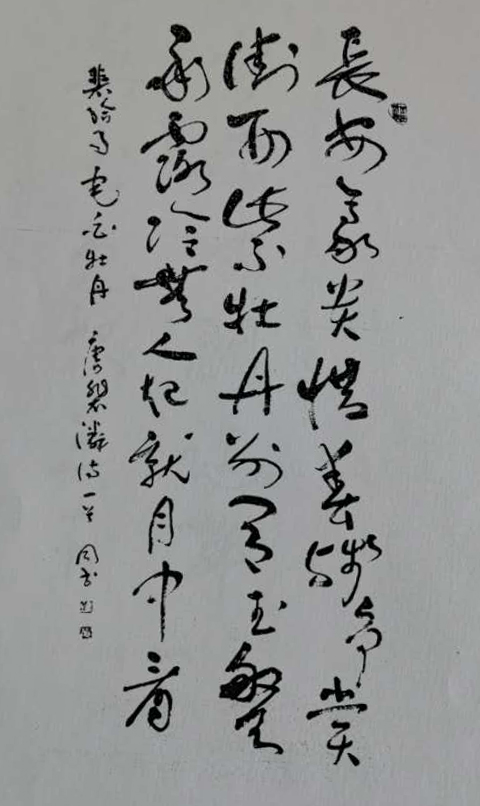 長安豪貴惜春殘爭賞
街西紫牡丹別有玉盤
承露冷無人起就月中看
裴給事宅白牡丹 唐裴潾詩一首